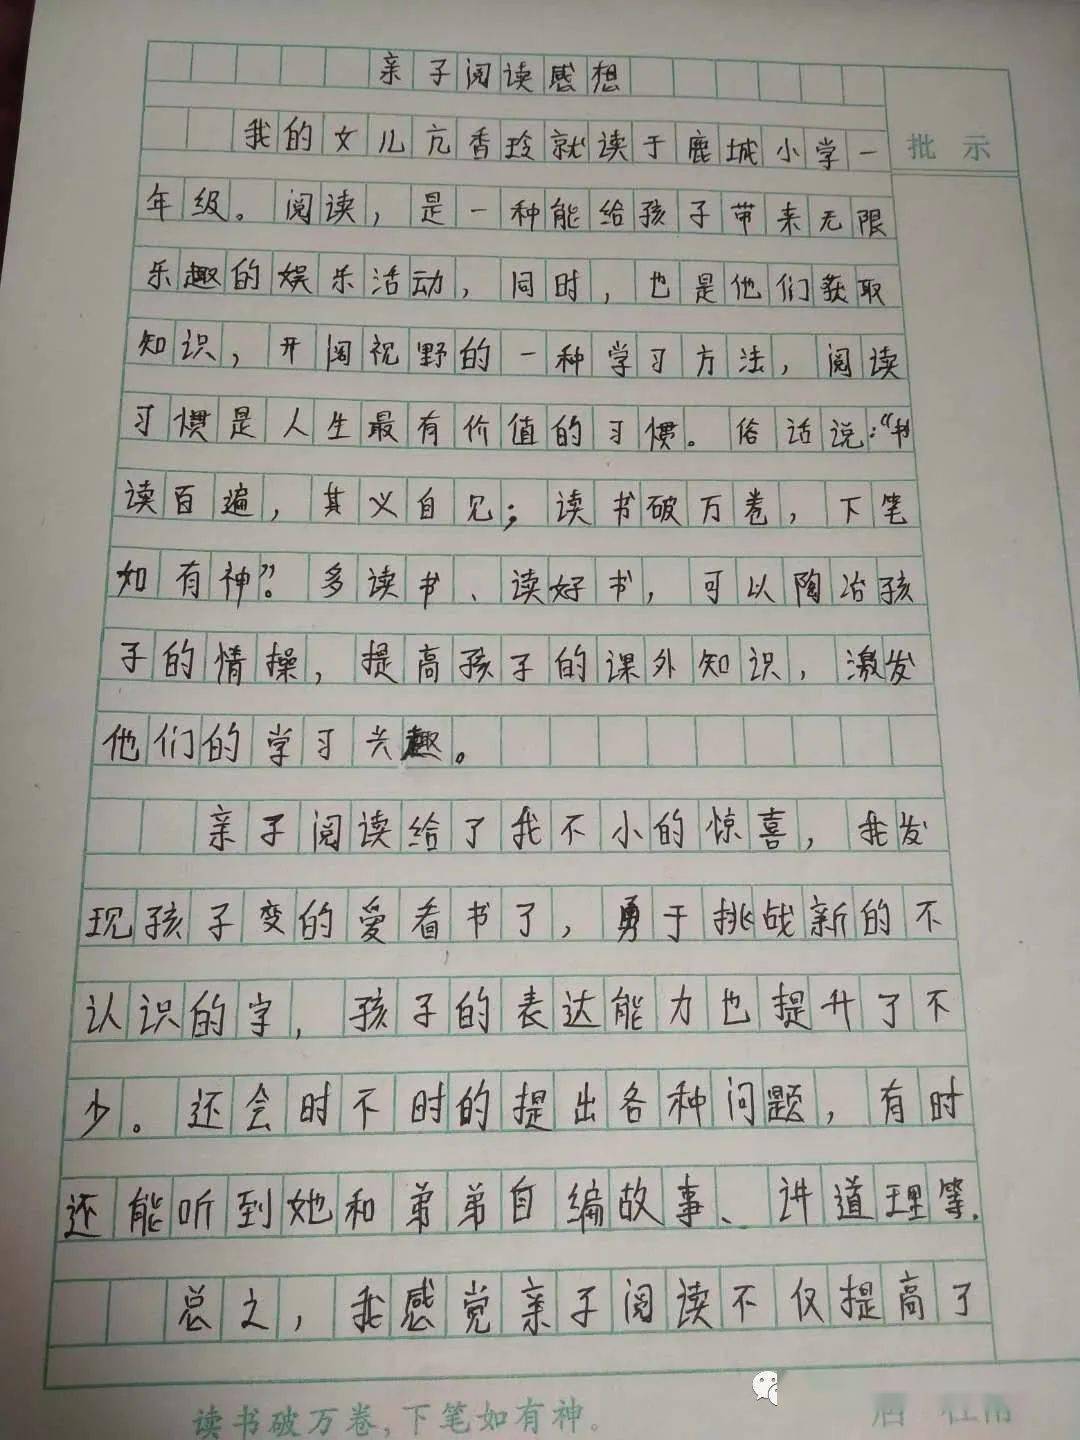 亲子阅读感想
批示
我的女儿亢香玲就读于鹿城小学一
年级。阅读，是一种能给孩子带来无限
乐趣的娱乐活动，同时，也是他们获取
知识，开阔视野的一种学习方法，阅读
习惯是人生最有价值的习惯。俗话说：“书
读百遍，其义自见；读书破万卷，下笔
如有神”。多读书、读好书，可以陶冶孩
子的情操，提高孩子的课外知识，激发
他们的学习兴趣。
亲子阅读给了我不小的惊喜，我发
现孩子变的爱看书了，勇于挑战新的不
认识的字，孩子的表达能力也提升了不
少。还会时不时的提出各种问题，有时
还能听到她和弟弟自编故事、讲道理等.
总之，我感觉亲子阅读不仅提高了
读书破万卷,下笔如有神。